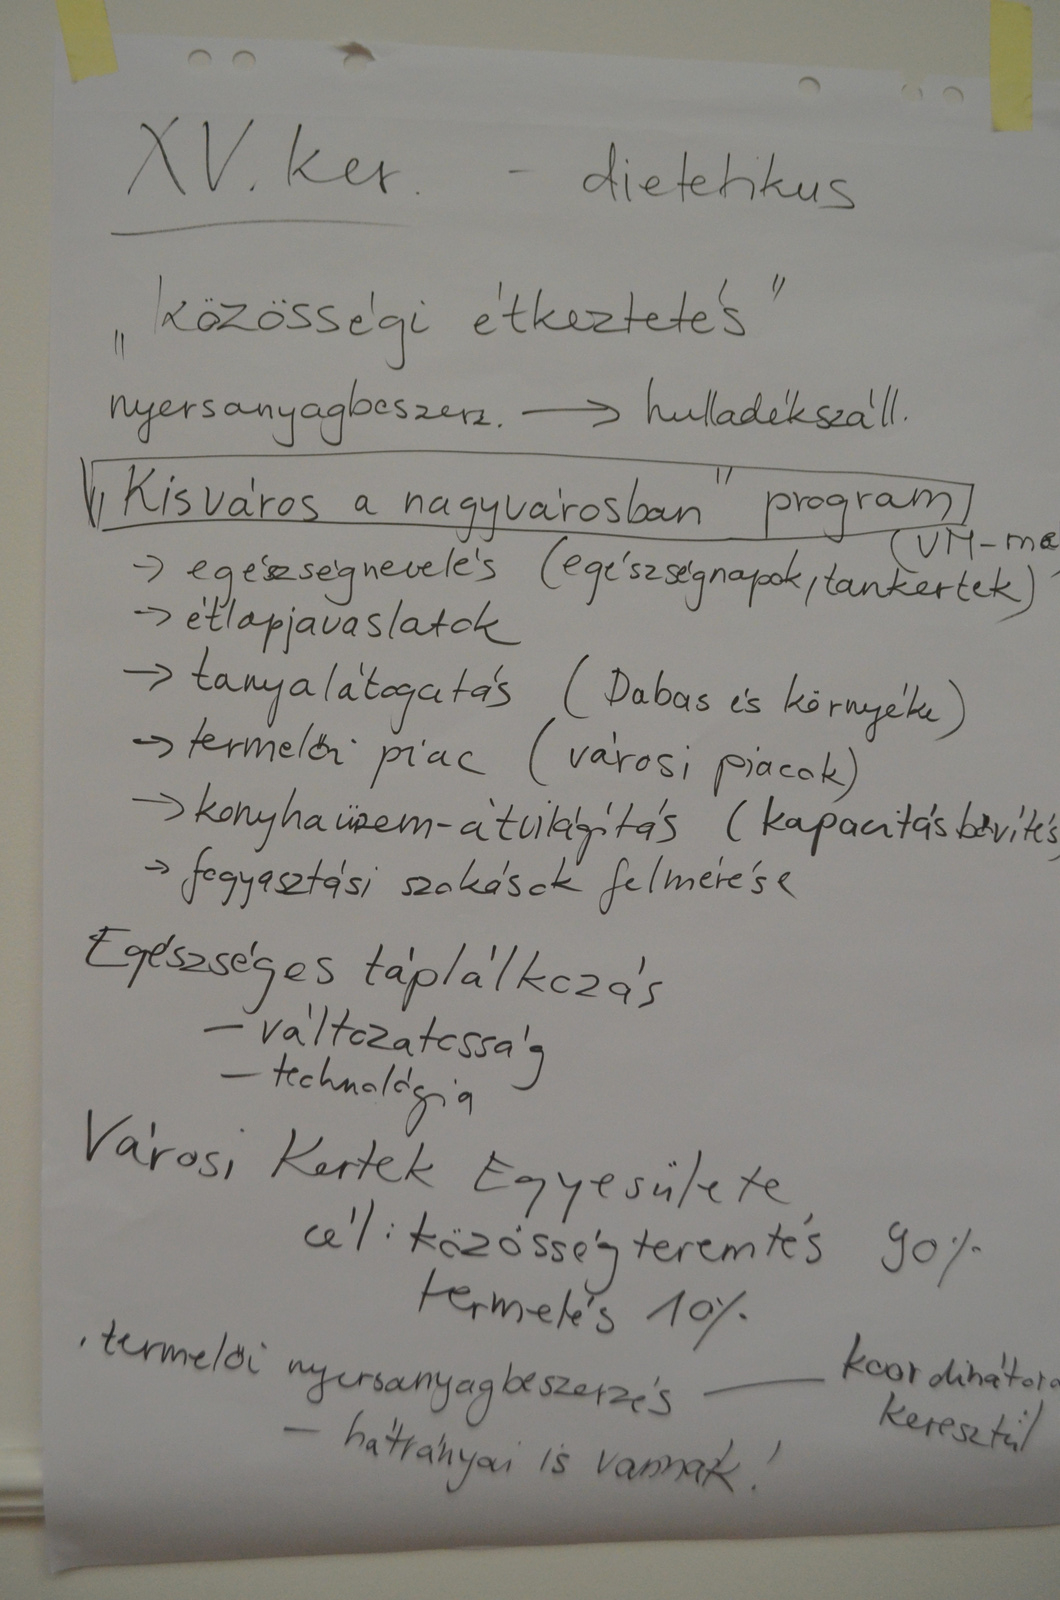 XV. ker. - dietetikus
„közösségi étkeztetés"
nyersanyagbeszerz. → hulladékszáll.
„Kisváros a nagyvárosban" program
(VM-me
→ egészségnevelés (egészségnapok, tankertek)
→ étlapjavaslatok
→ tanyalátogatás (Dabas és környéke)
→ termelői piac (városi piacok)
→ konyhaüzem-átvilágítás (kapacitásbővítés
→ fogyasztási szokások felmérése
Egészséges táplálkozás
- változatosság
- technológia
Városi Kertek Egyesülete
cél: közösségteremtés 90%
termelés 10%
. termelői nyersanyagbeszerzés — koordinátora
keresztül
- hátrányai is vannak!